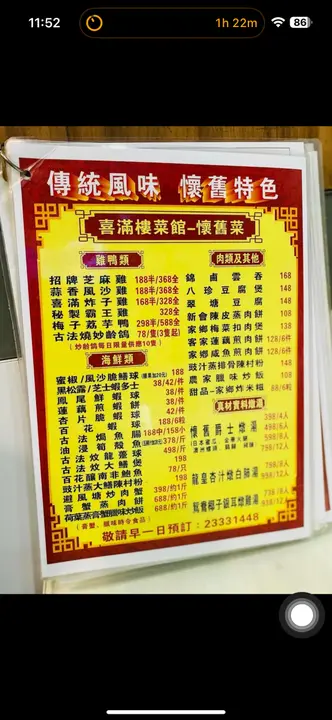 11:52
1h 22m
86
傳統風味 懷舊特色
喜滿樓菜館-懷舊菜
雞鴨類
招牌芝麻雞 188半/368全
蒜香風沙雞 188半/368全
喜滿炸子雞 168半/328全
秘製霸王雞 328全
梅子荔芋鴨 298半/588全
古法燒炒齡鴿 78/隻(3隻起)
(炒齡鴿每日限量供應10隻)
海鮮類
蜜椒/風沙脆鱔球 188
黑松露/芝士蝦多士 38/42/件
鳳尾鮮蝦球 38/件
蓮藕煎蝦餅 38/件
杏片脆蝦球 42/件
百花蝦球 188/6粒
古法焗魚腸 168中/158小
油浸筍殼魚 378/斤
古法炆龍躉球 198
古法炆大鱔煲
百花釀南非鮑魚 78/只
豉汁蒸大鱔陳村粉 198
避風塘炒肉蟹 398/約1斤
膏蟹蒸肉餅 688/約1斤
荷葉蒸膏蟹臘味炒飯 688/約1斤
(膏蟹、臘味時令食品)
肉類及其他
錦鹵雲吞 168
八珍豆腐煲 148
翠塘豆腐 148
新會陳皮蒸肉餅 108
家鄉梅菜扣肉煲 138
客家蓮藕煎肉餅 128/6件
家鄉咸魚煎肉餅 128/6件
豉汁蒸排骨陳村粉 148
農家臘味炒飯 108
甜品-家鄉炸米糍 88/6粒
真材實料燉湯
懷舊爵士燉湯
龍皇杏汁燉白肺湯
鴛鴦椰子銀耳燉雞湯
敬請早一日預訂:23331448